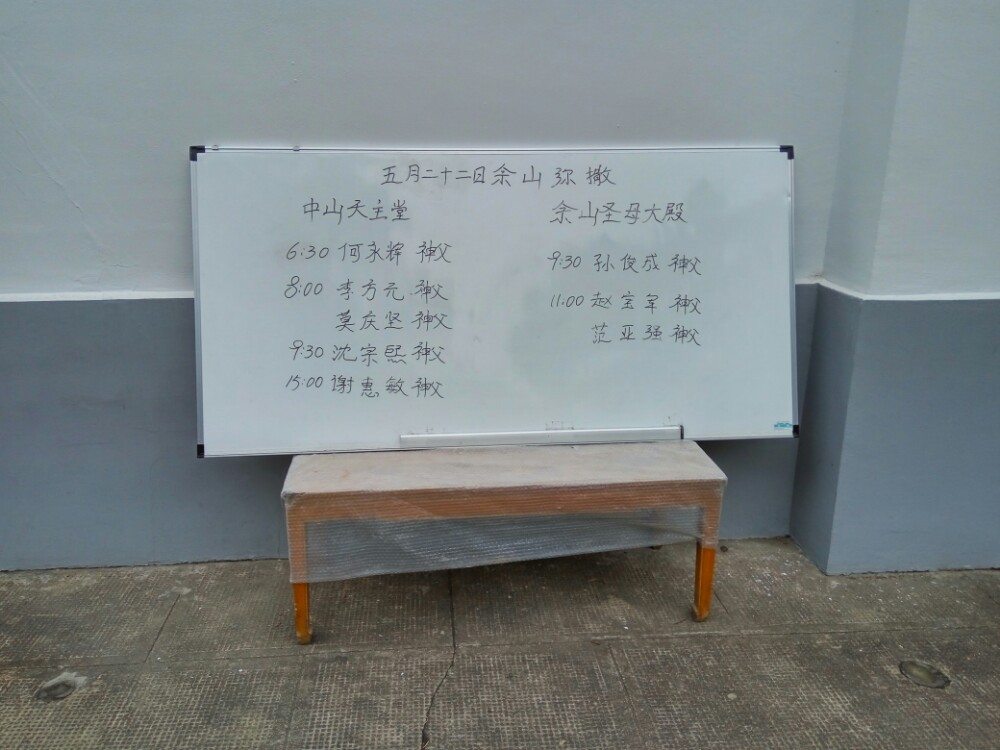 五月二十二日佘山弥撒
中山天主堂
6:30 何永辉 神父
8:00 李方元 神父
莫庆坚 神父
9:30 沈宗熙 神父
15:00 谢惠敏 神父
佘山圣母大殿
9:30 孙俊成 神父
11:00 赵宝军 神父
范亚强 神父